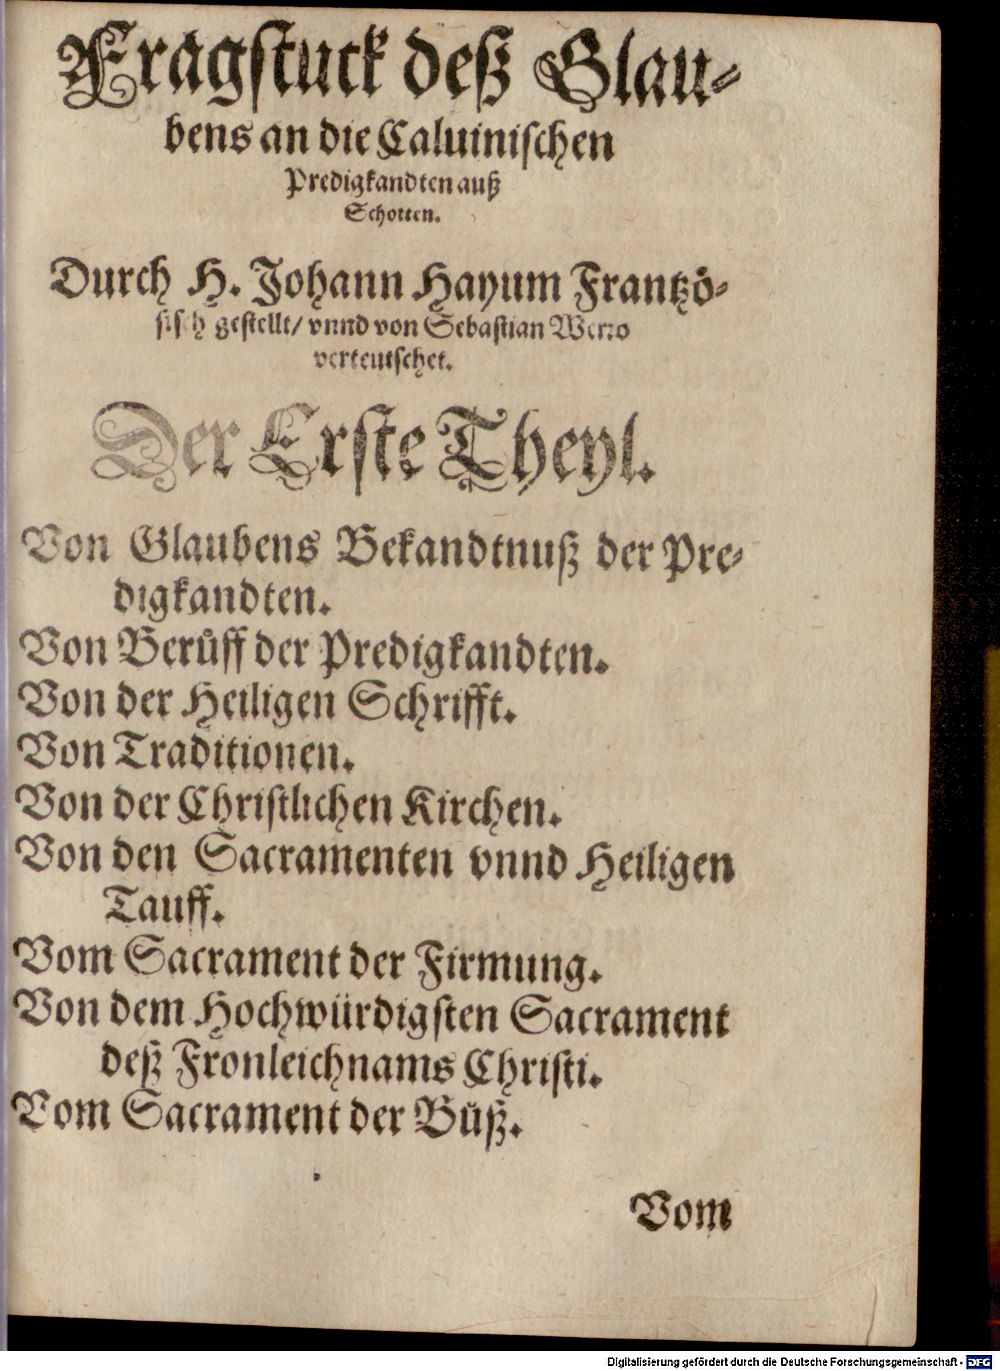 Fragstuck deß Glau-
bens an die Caluinischen
Predigkandten auß
Schotten.
Durch H. Johann Hayum Frantzö-
sisch gestellt/ vnnd von Sebastian Werro
verteutschet.
Der Erste Theyl.
Von Glaubens Bekandtnuß der Pre-
digkandten.
Von Berůff der Predigkandten.
Von der Heiligen Schrifft.
Von Traditionen.
Von der Christlichen Kirchen.
Von den Sacramenten vnnd Heiligen
Tauff.
Vom Sacrament der Firmung.
Von dem Hochwürdigsten Sacrament
deß Fronleichnams Christi.
Vom Sacrament der Bůß.
Vom
Digitalisierung gefördert durch die Deutsche Forschungsgemeinschaft - DFG